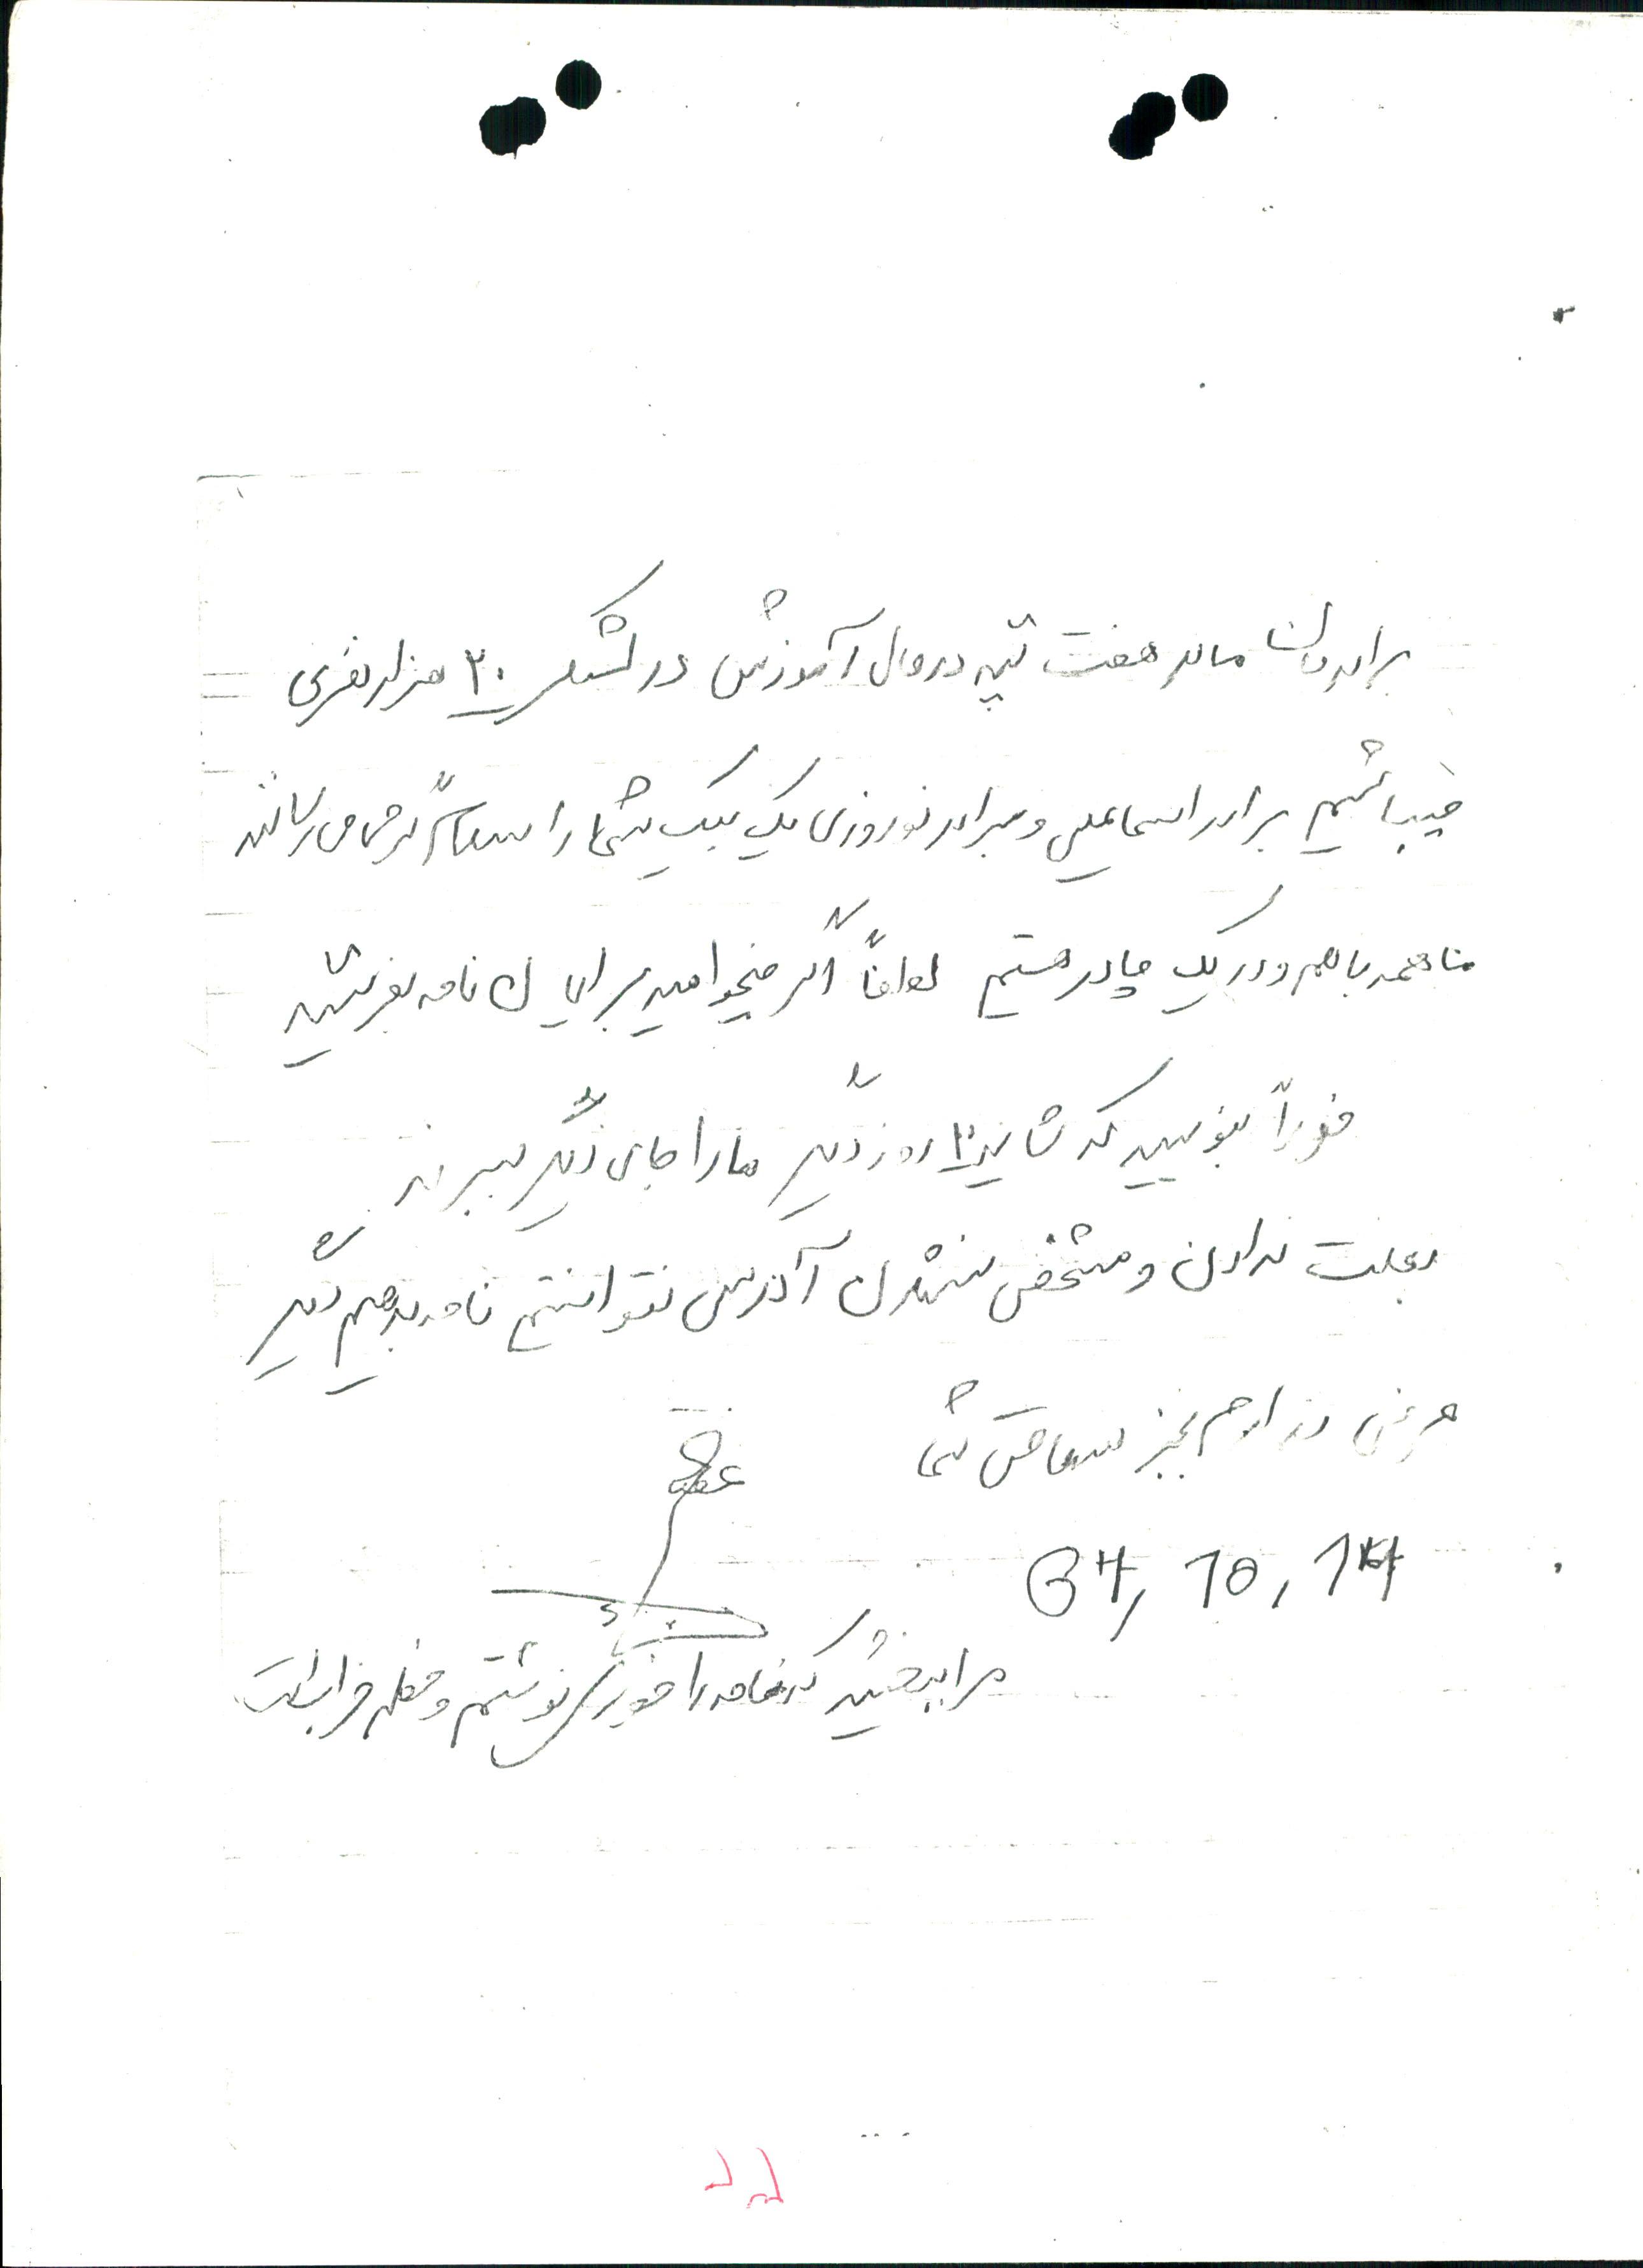 برادران ما در هفت تپه در حال آموزش در لشکر ۳۰ هزار نفری
میباشیم برادر اسماعیلی و برادر نوروزی یک یک شما را سلام گرم می رسانند
ما همه با هم در یک چادر هستیم لطفاً اگر میخواهید برایمان نامه بفرستید
فوراً بنویسید که شاید ۲ روز دیگر ما را جای دیگر ببرند
بعلت نداشتن و مشخص نشدن آدرس نتوانستیم نامه بدهیم دیگر
عرضی ندارم بجز سلامتی شما
64, 10, 14
مرا ببخشید که نامه را نوشتم و خطم خراب است